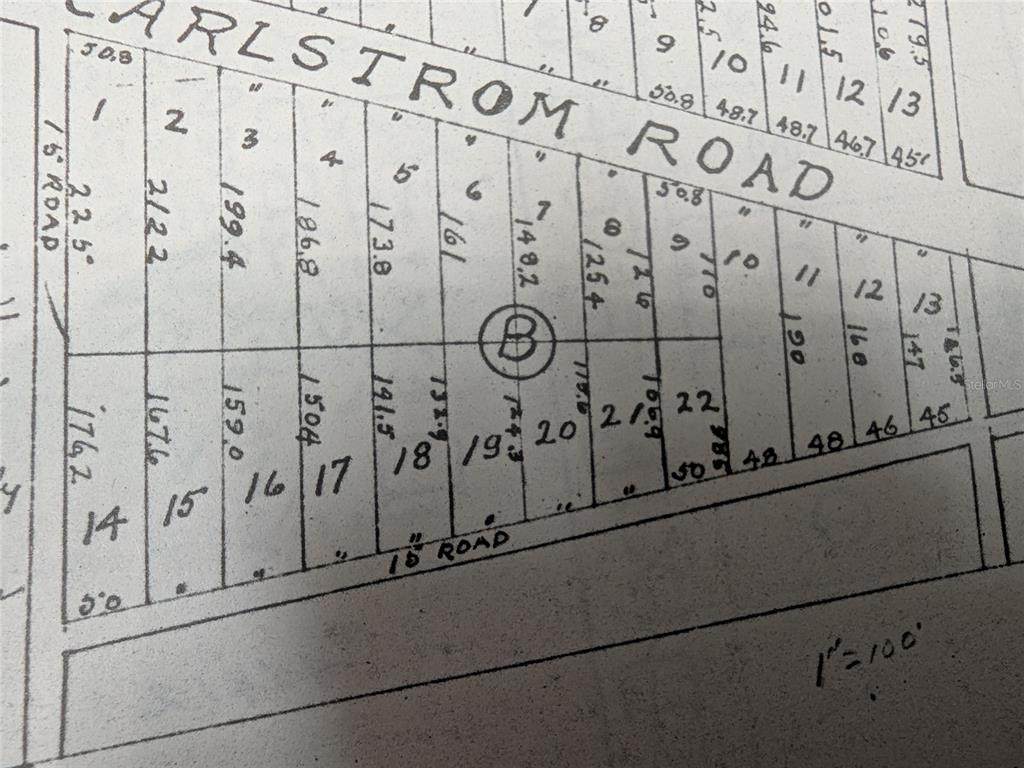 CARLSTROM ROAD
8 9 10 11 12 13
2.5 94.6 01.5 10.6 219.5
50.8 48.7 48.7 46.7 45'
50.8 " " " " " " 50.8 " " " "
1 2 3 4 5 6 7 8 9 10 11 12 13
15' ROAD
225° 212.2 199.4 186.8 173.8 161 148.2 125.4 126 110
190 160 147 126.5
B
176.2 167.6 159.0 150.4 141.5 132.9 124.3 118.6 106.9 98.5
14 15 16 17 18 19 20 21 22
50 " " " " " " " 50 48 48 46 45
15' ROAD
1"=100'
StellarMLS